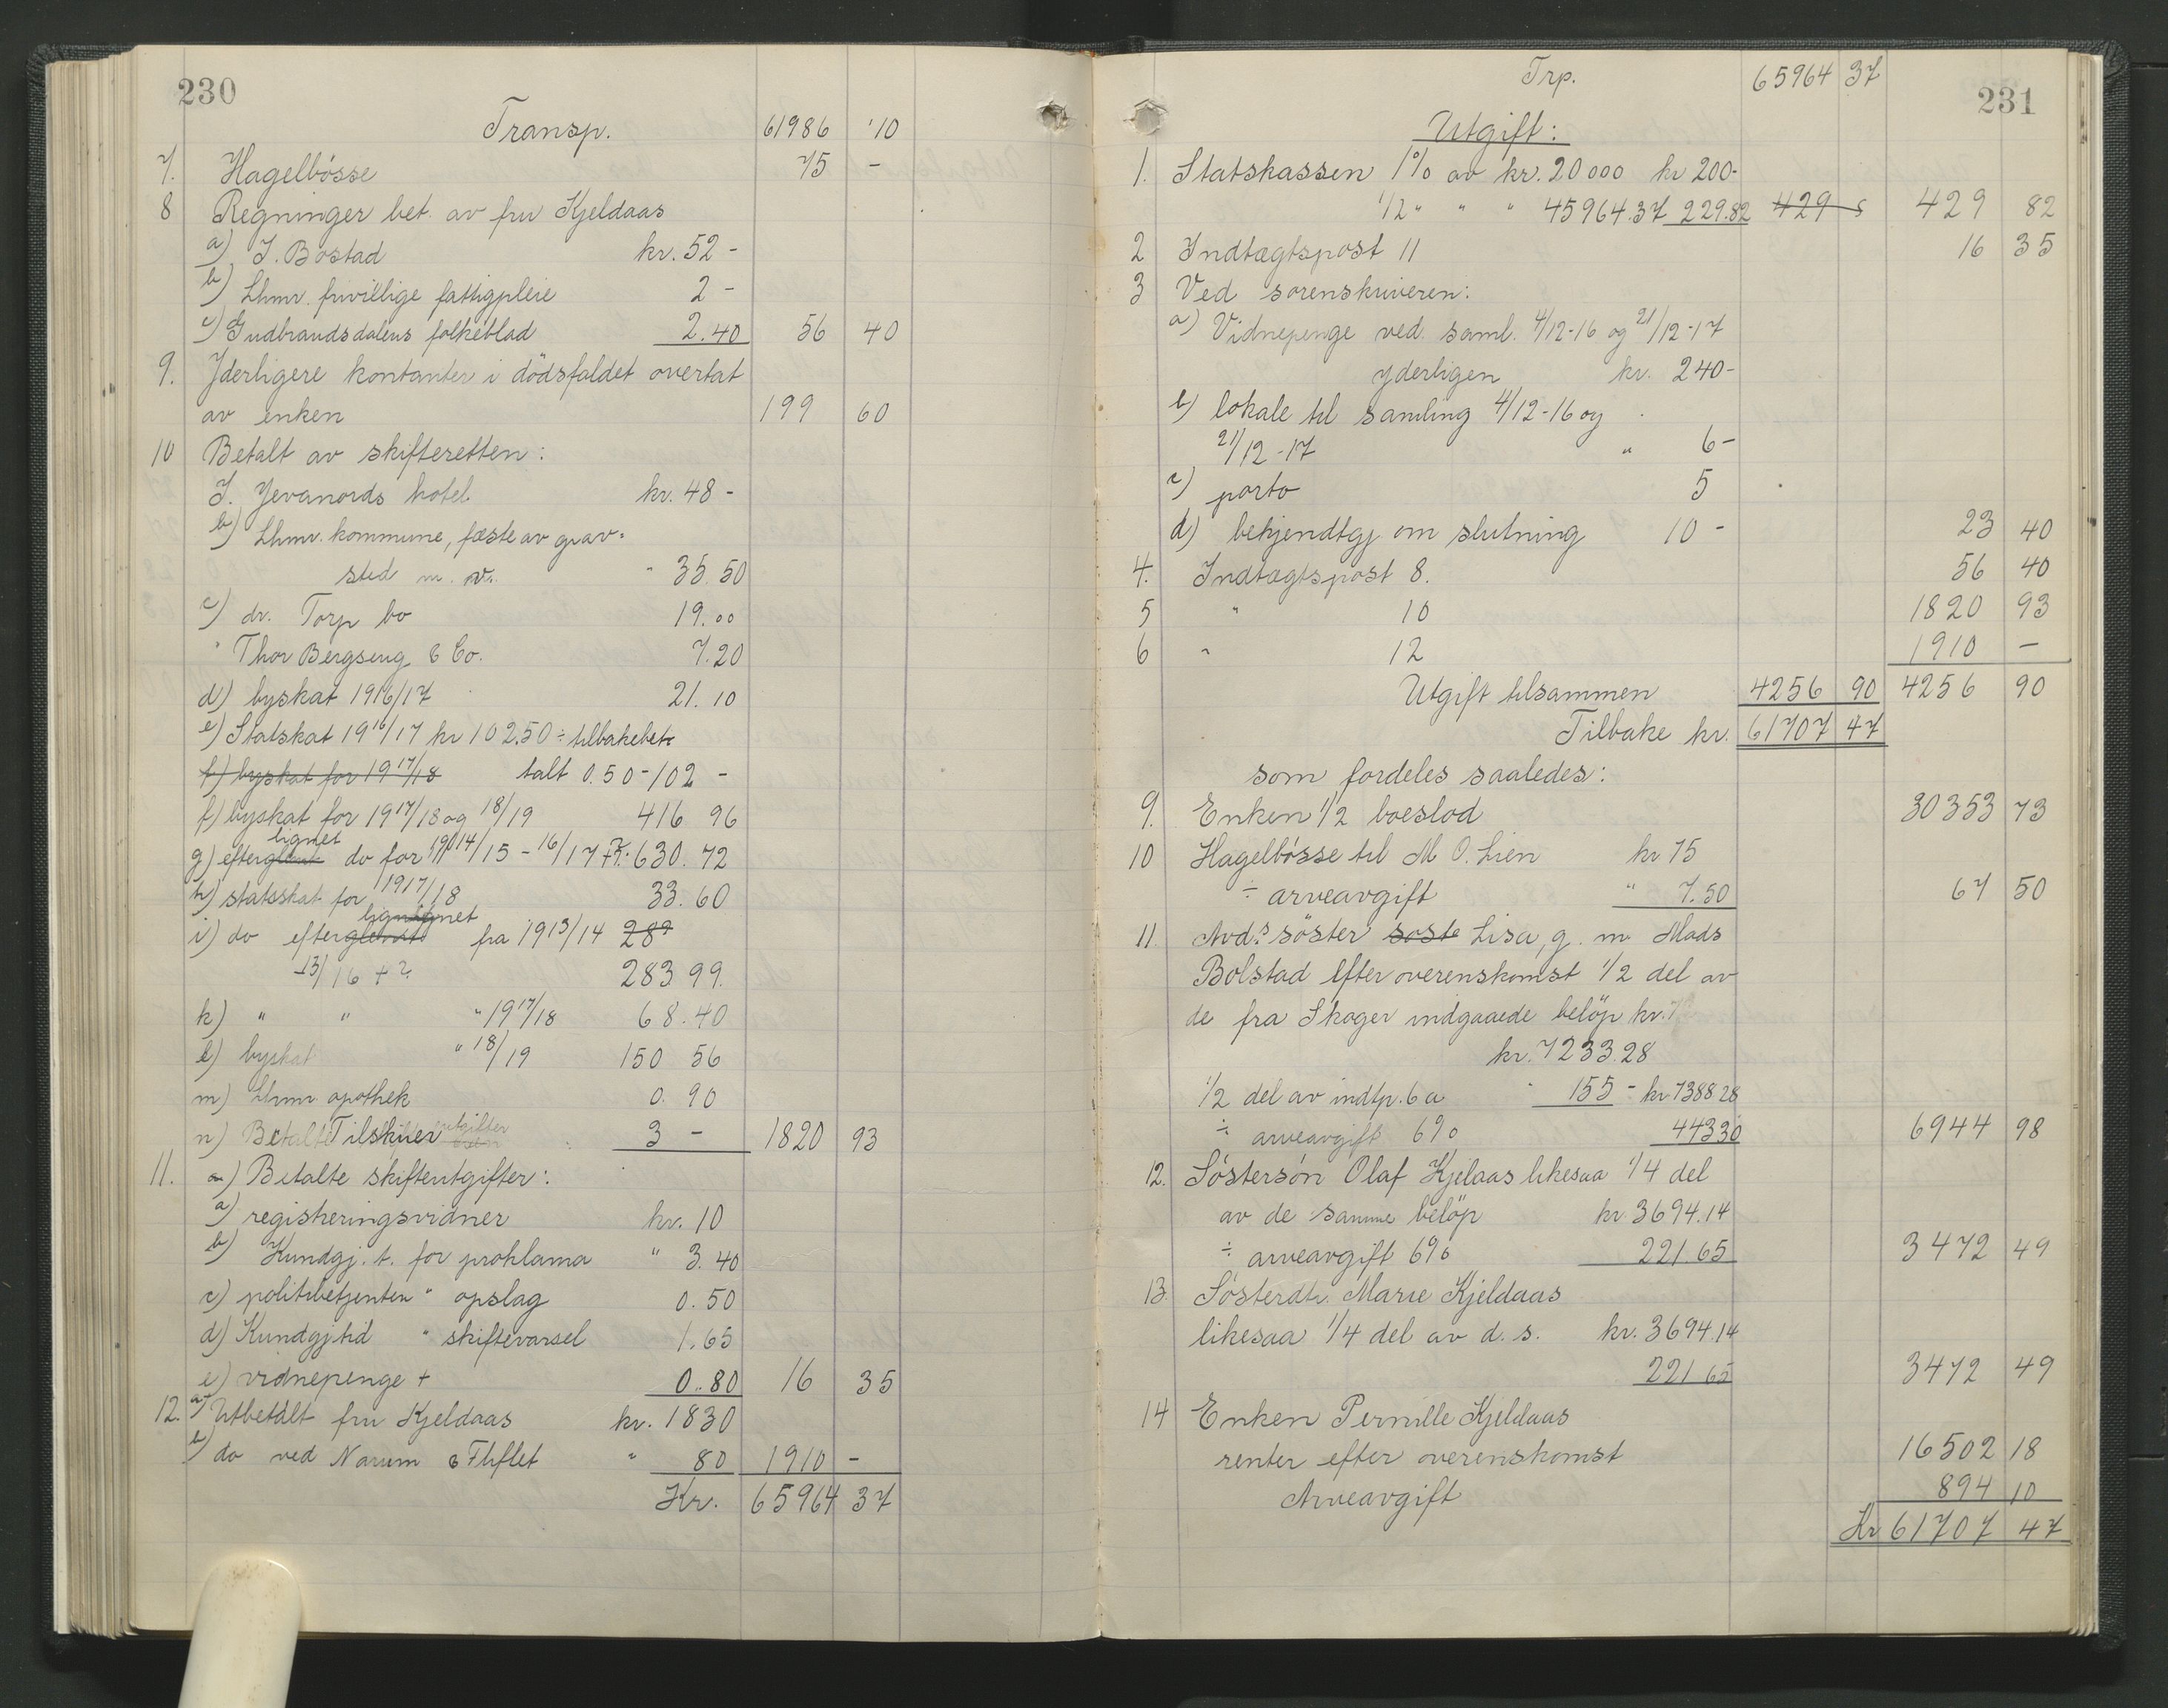 230
Transp. 61986 10
7. Hagelbösse 75 -
8 Regninger bet. av fru Kjeldaas
a) J. Bostad kr. 52 -
b) Lhmr. frivillige fattigpleie 2 -
c) Gudbrandsdalens folkeblad 2.40 56 40
9. Yderligere kontanter i dödsfaldet overtat
av enken 199 60
10 Betalt av skifteretten:
J. Jevanords hotel kr. 48 -
b) Lhmr. kommune, fæste av grav-
sted m. v. " 35.50
c) dr. Torp bo 19.00
" Thor Bergseng & Co. 7.20
d) byskat 1916/17 21.10
e) Statskat 1916/17 kr 102.50 ÷ tilbakebe-
f) byskat for 1917/18 talt 0.50 - 102 -
f) byskat for 1917/18 og 18/19 416 96
g) efterlignet do for 1914/15 - 16/17 630.72
h) statsskat for 1917/18 33.60
i) do efterlignet fra 1913/14 289
13/16 + 2. 283 99.
k) " " " 1917/18 68.40
l) byskat " 18/19 150 56
m) Lhmr apothek 0.90
n) Betalte Tilskuer utgifter 3 - 1820 93
11. a) Betalte skifteutgifter:
a) registreringsvidner kr. 10
b) Kundgj. t. for proklama " 3.40
c) politibetjenten " opslag 0.50
d) Kundgj tid " skiftevarsel 1.65
e) vidnepenge + 0.80 16 35
12. a) Utbetalt fru Kjeldaas kr. 1830
b) do ved Narum & Fliflet " 80 1910 -
Kr. 65964 37
231
Trp. 65964 37
Utgift:
1. Statskassen 1% av kr. 20000 kr 200-
1/2 " " " 45964.37 229.82 429 429 82
2 Indtægtspost 11 16 35
3 Ved sorenskriveren:
a) Vidnepenge ved saml. 4/12-16 og 21/12-17
yderligen kr. 240-
b) lokale til samling 4/12-16 og
21/12-17 " 6-
c) porto 5
d) bekjendtgj om slutning 10 - 23 40
4. Indtægtspost 8. 56 40
5 " 10 1820 93
6 " 12 1910 -
Utgift tilsammen 4256 90 4256 90
Tilbake kr. 61707 47
som fordeles saaledes:
9. Enken 1/2 boeslod 30353 73
10 Hagelbösse til M O. Lien kr 75
÷ arveavgift " 7.50 67 50
11 Avd.s söster soste Lisa, g. m. Mads
Bolstad efter overenskomst 1/2 del av
de fra Skoger indgaaede belöp kr.
kr. 7233.28
1/2 del av indtp. 6a " 155 - kr 7388 28
÷ arveavgift 6% 443 30 6944 98
12. Söstersön Olaf Kjelaas likesaa 1/4 del
av de samme belöp kr. 3694.14
÷ arveavgift 6% 221.65 3472 49
13 Sösterdtr. Marie Kjeldaas
likesaa 1/4 del av d. s. kr. 3694.14
221 65 3472 49
14 Enken Pernille Kjeldaas
renter efter overenskomst 16502 18
Arveavgift 894 10
Kr 61707 47